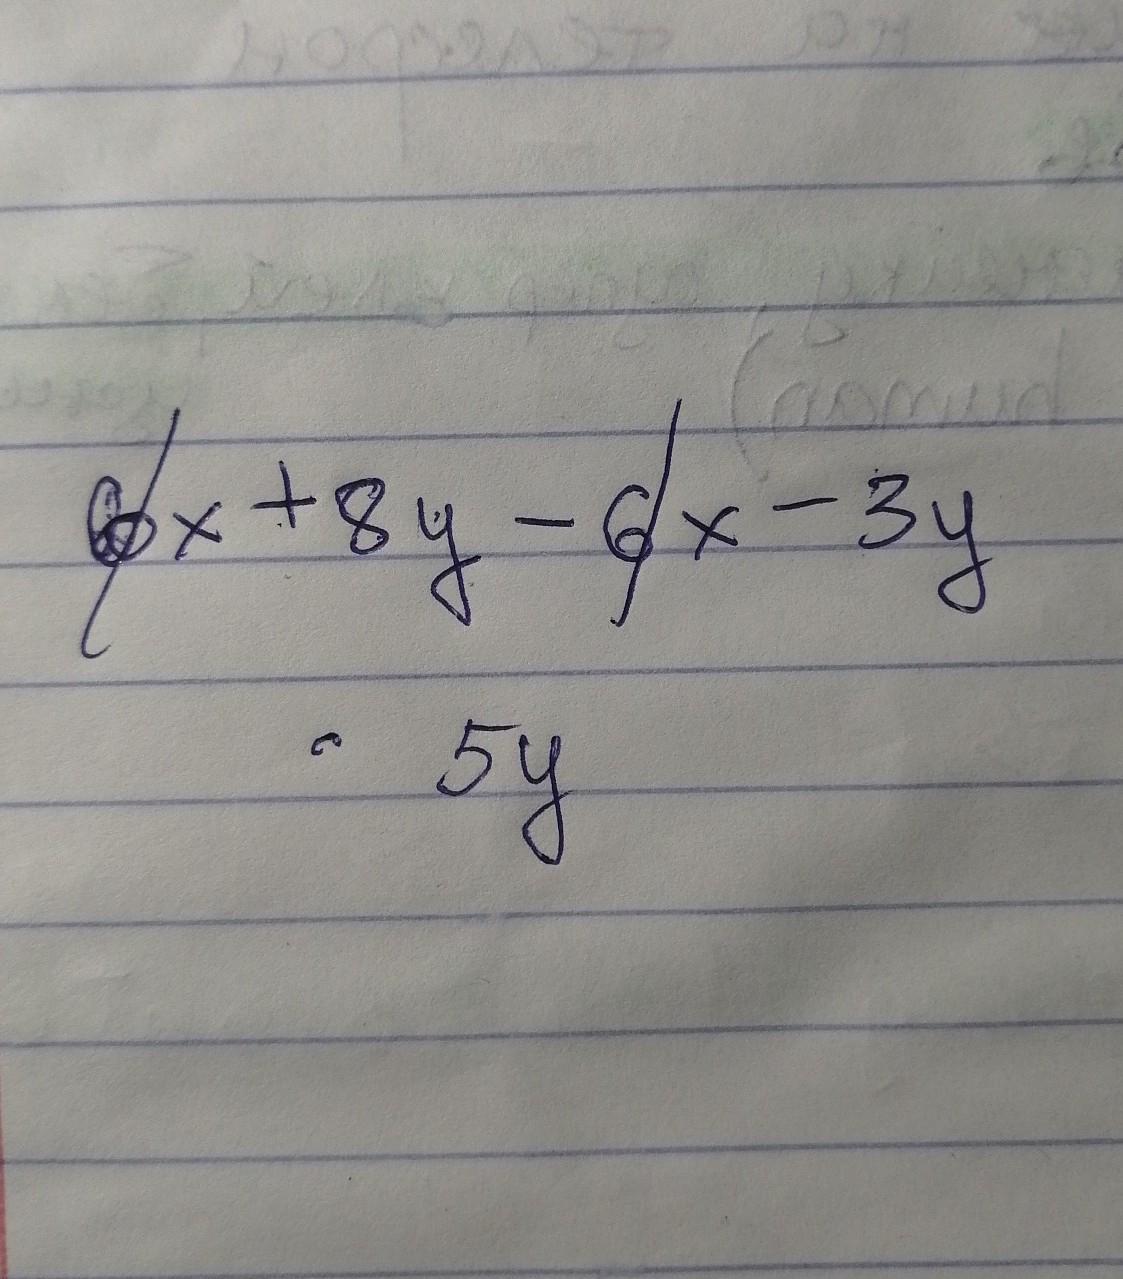 6x + 8y - 6x - 3y
5y